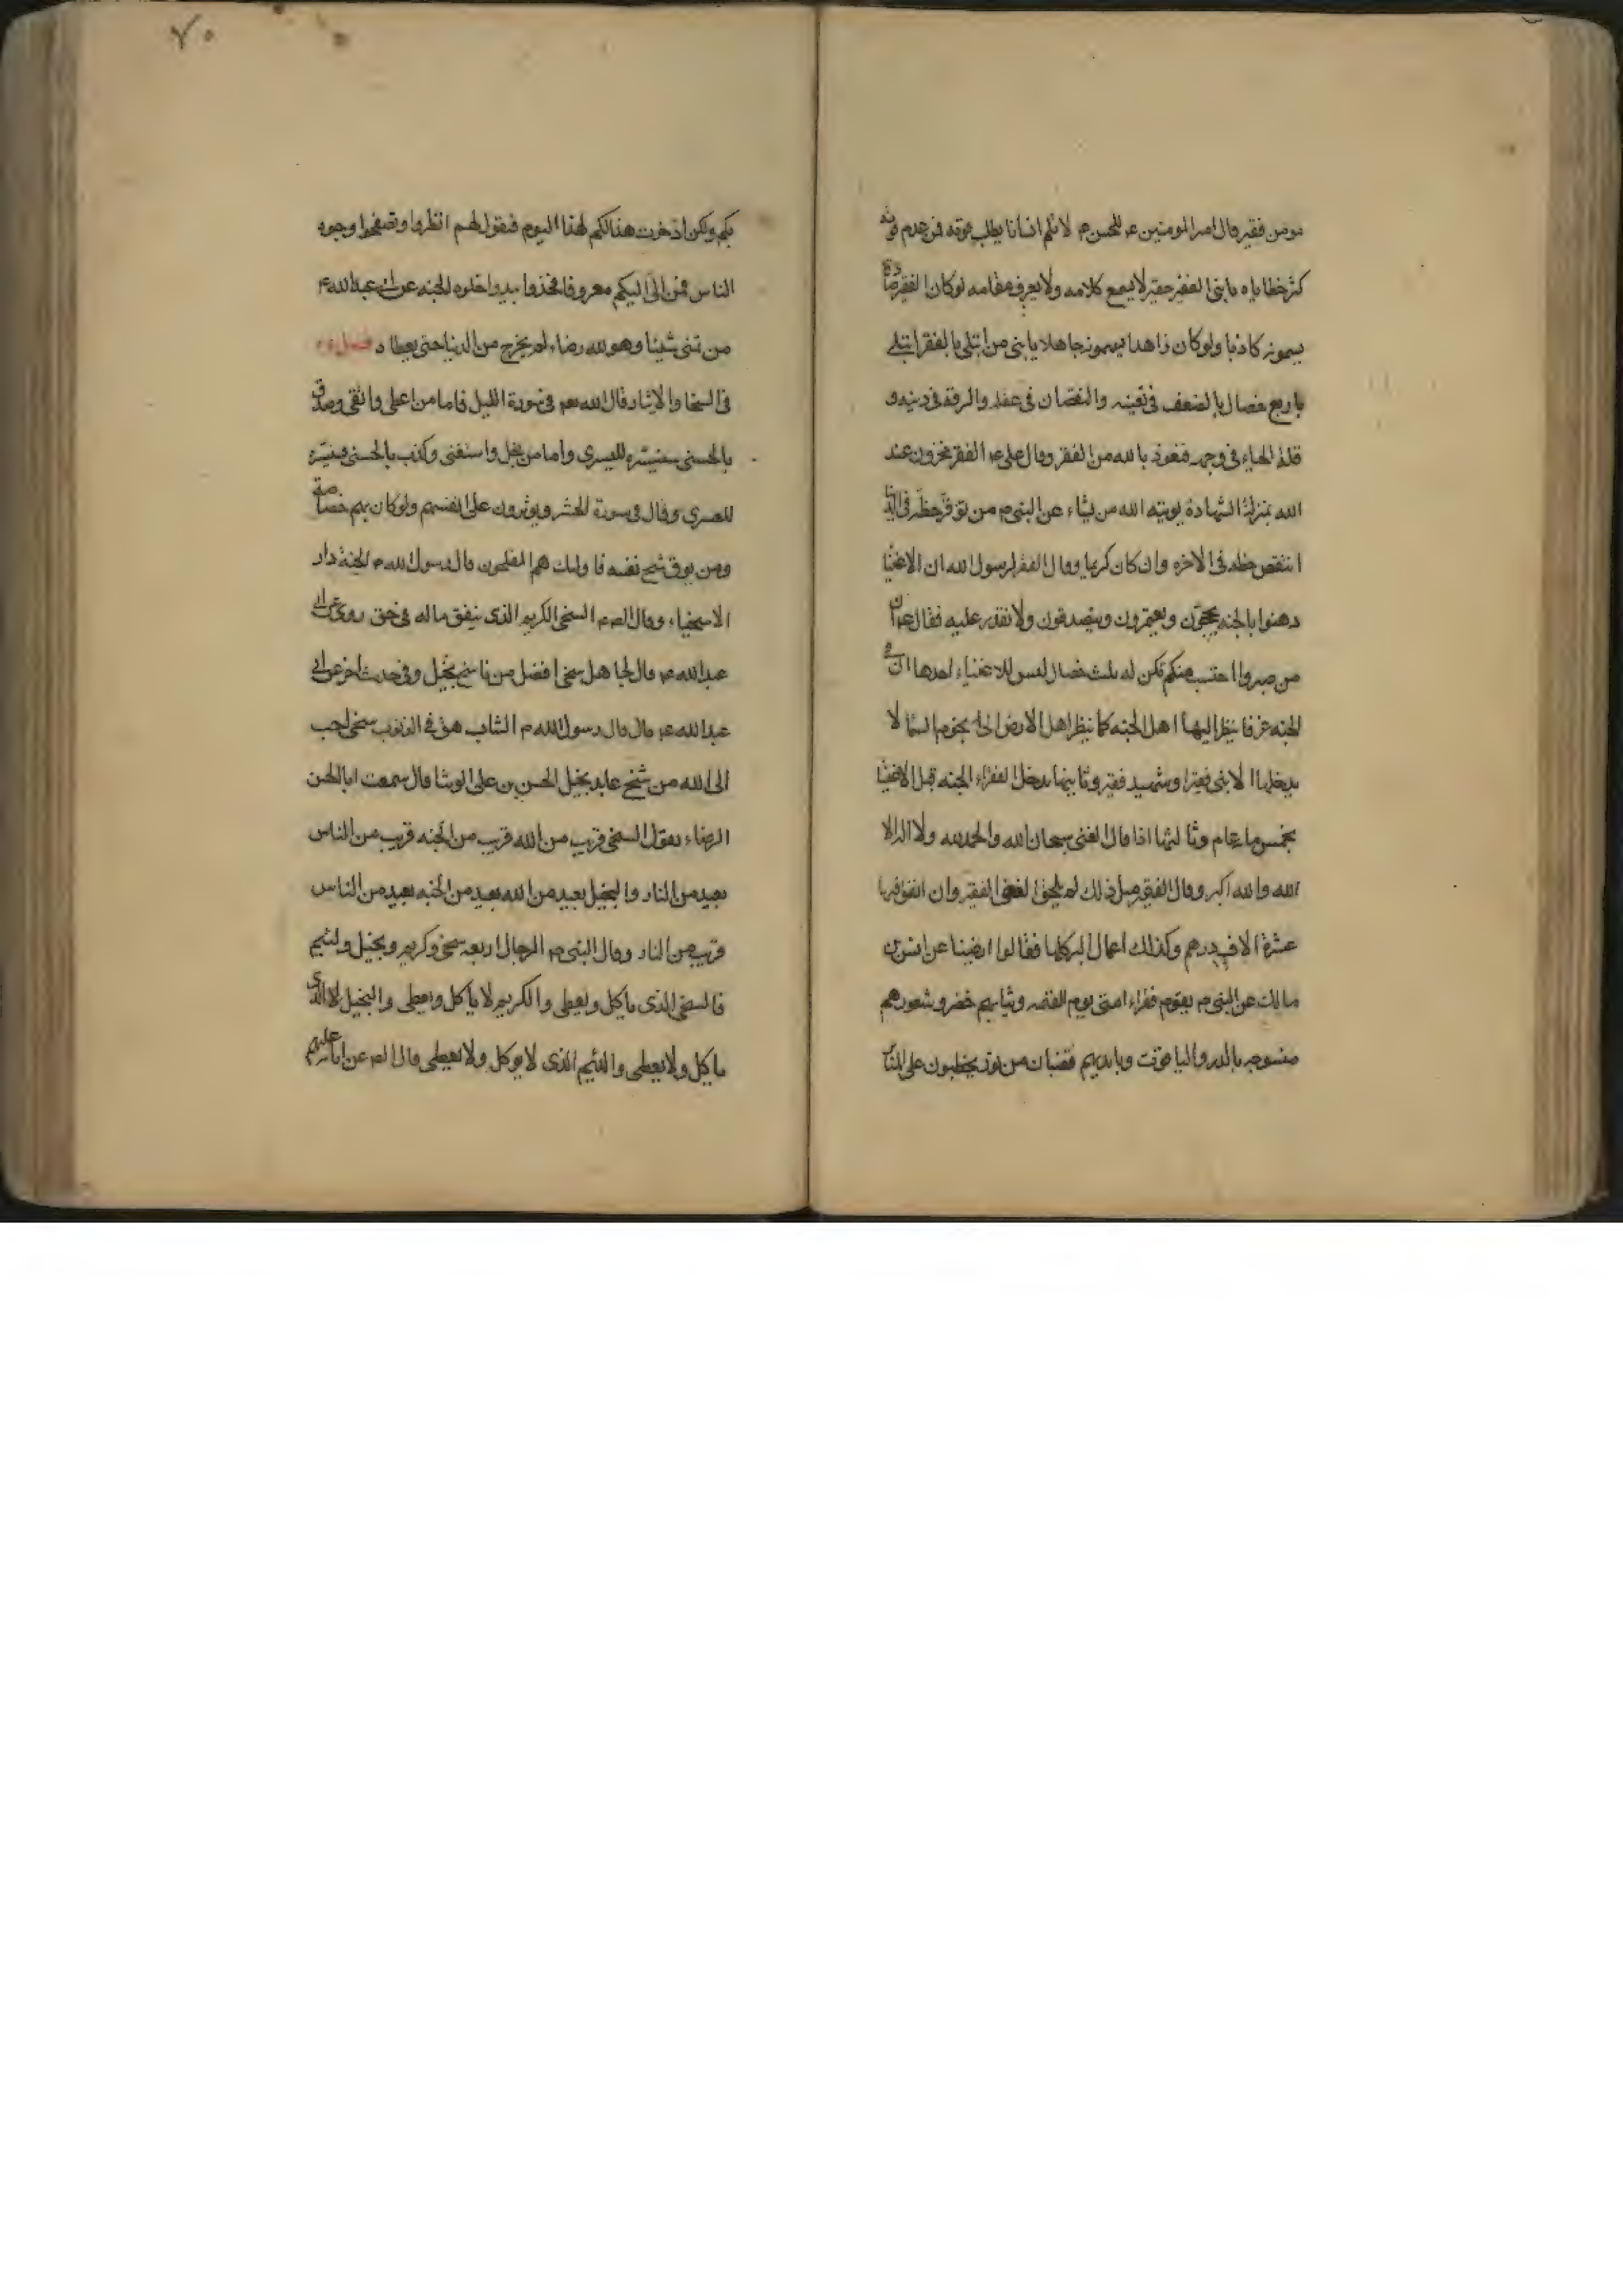 مومن فقير قال امير المومنين ع للحسن م لا تلم انسانا يطلب قوته فمن عدم قوته
كثر خطاياه يا بنى الفقير حقير لا يسمع كلامه ولا يعرف مقامه لو كان الفقير صادقا
يسمونه كاذبا ولو كان زاهدا يسمونه جاهلا يا بنى من ابتلى بالفقر ابتلى
باربع خصال بالضعف فى يقينه والنقصان فى عقله والرقة فى دينه و
قلة الحياء فى وجهه فنعوذ بالله من الفقر وقال على ع الفقر مخزون عند
الله بمنزلة الشهادة يوتيه الله من يشاء عن النبى م من توفر حظه فى الدنيا
انتقص حظه فى الاخره وان كان كريما وقال الفقراء لرسول الله ان الاغنيا
ذهبوا بالجنه يحجون ويعتمرون ويتصدقون ولا نقدر عليه فقال ع ان
من صبر واحتسب منكم تكن له ثلث خصال ليس للاغنياء احدها ان فى
الجنه غرفا ينظر اليها اهل الجنه كما ينظر اهل الارض الى نجوم السما لا
يدخلها الا نبى فقير او شهيد فقير وثانيها يدخل الفقراء الجنه قبل الاغنيا
بخمسمائه عام وثالثها اذا قال الغنى سبحان الله والحمد لله ولا اله الا
الله والله اكبر وقال الفقير مثل ذلك لم يلحق الغنى الفقير وان انفق فيها
عشرة الاف درهم وكذلك اعمال البر كلها فقالوا رضينا عن انس بن
مالك عن النبى م يقوم فقراء امتى يوم القيمه وثيابهم خضر وشعورهم
منسوجه بالدر والياقوت وبايديهم قضبان من نور يخطبون على المنابر
٧٠
بكم ولكن ادخرت هذا لكم لهذا اليوم فيقول لهم انظروا وتصفحوا وجوه
الناس فمن اتى اليكم معروفا فخذوا بيده وادخلوه الجنه عن ابى عبد الله ع
من تمنى شيئا وهو لله رضاء لم يخرج من الدنيا حتى يعطاه فصل
فى السخا والايثار قال الله تعه فى سورة الليل فاما من اعطى واتقى وصدق
بالحسنى فسنيسره لليسرى واما من بخل واستغنى وكذب بالحسنى فسنيسره
للعسرى وقال فى سورة الحشر ويوثرون على انفسهم ولو كان بهم خصاصة
ومن يوق شح نفسه فاولئك هم المفلحون قال رسول الله م الجنة دار
الاسخياء وقال الصم السخى الكريم الذى ينفق ماله فى حق روى عن ابى
عبد الله ع قال لجاهل سخى افضل من ناسخ بخيل وفى حديث اخر عن ابى
عبد الله ع قال قال رسول الله م الشاب هق فى الذنوب سخى احب
الى الله من شيخ عابد بخيل الحسن بن على الوشا قال سمعت ابا الحسن
الرضاء يقول السخى قريب من الله قريب من الجنه قريب من الناس
بعيد من النار والبخيل بعيد من الله بعيد من الجنه بعيد من الناس
قريب من النار وقال النبى م الرجال اربعه سخى وكريم وبخيل ولئيم
فالسخى الذى ياكل ويعطى والكريم لا ياكل ويعطى والبخيل الذى
ياكل ولا يعطى واللئيم الذى لا يوكل ولا يعطى قال الصم عن ابائه عليهم